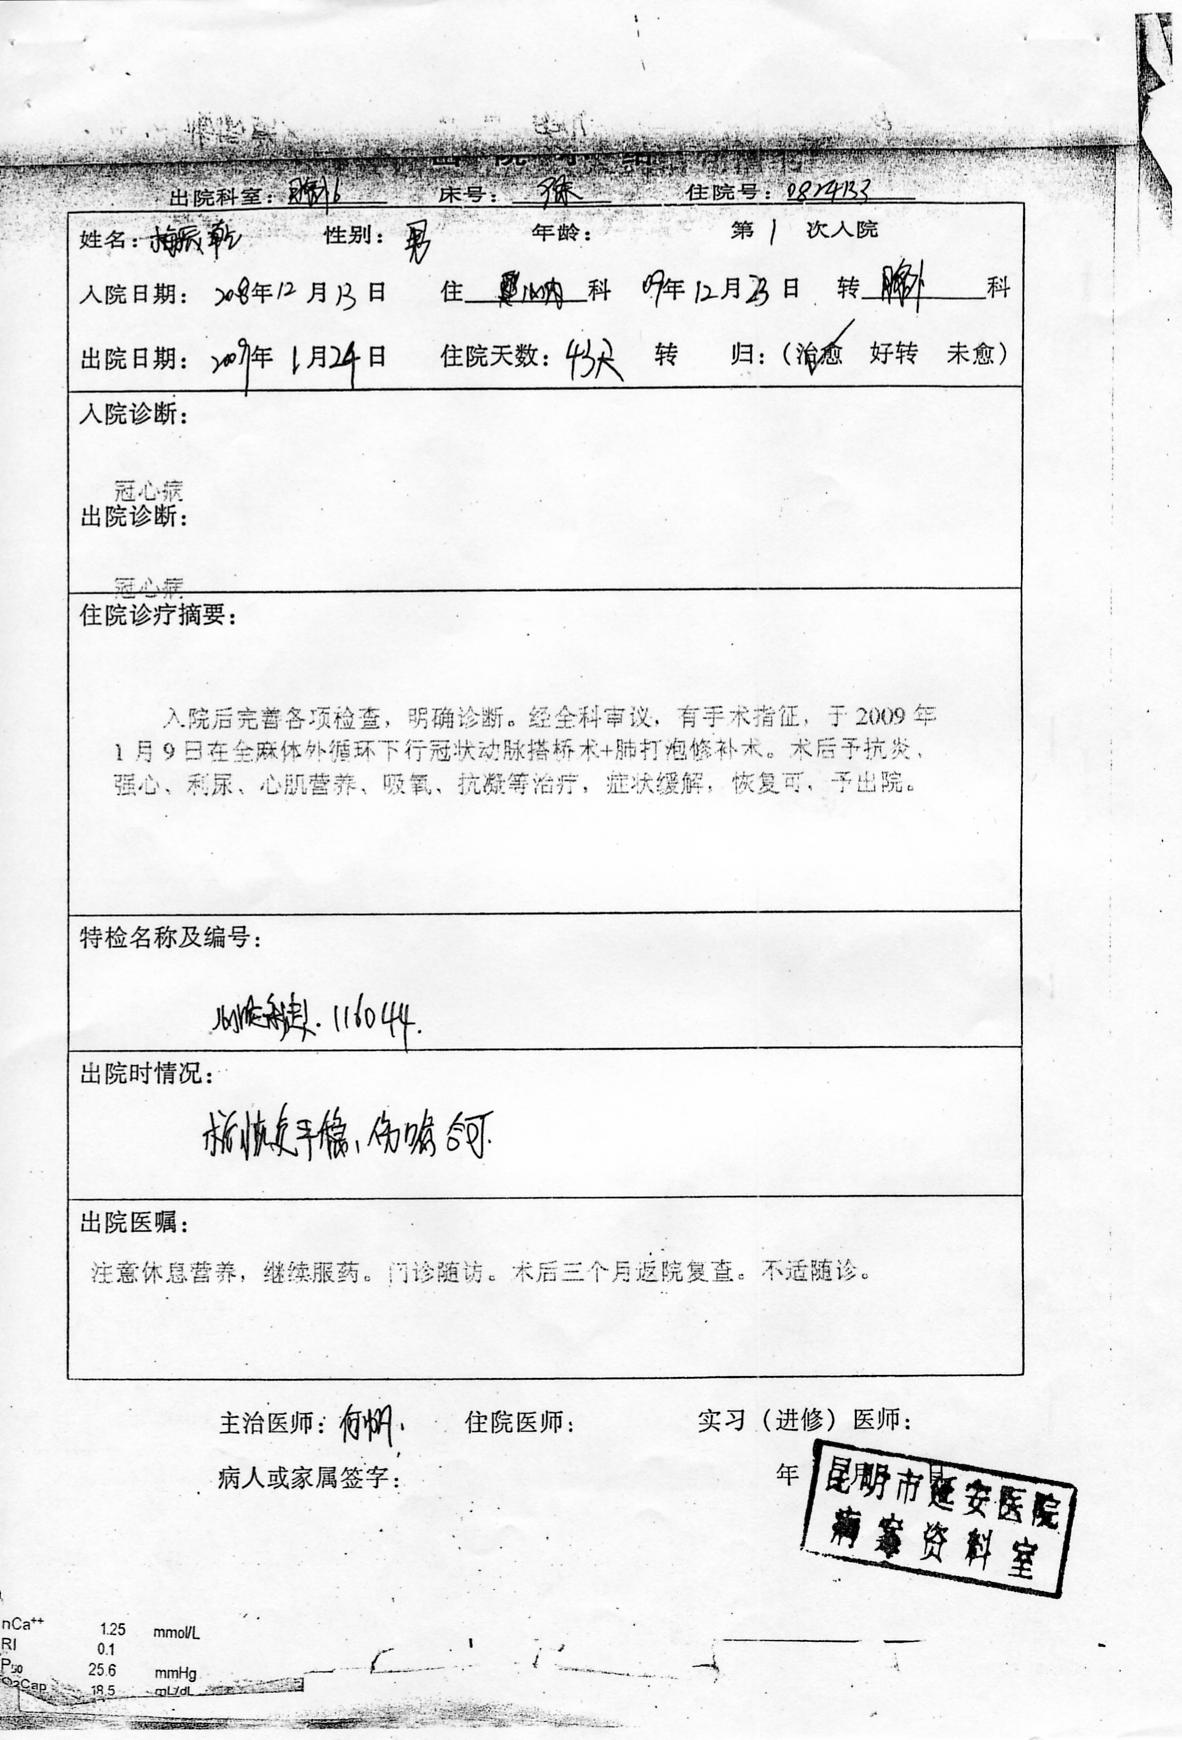 出院小结
出院科室：胸外 床号： 住院号：0824133
姓名：梅 乾 性别：男 年龄： 第 1 次入院
入院日期：2008年12月13日 住 心内 科 09年12月23日 转 胸外 科
出院日期：2009年1月24日 住院天数：43天 转 归：（治愈 好转 未愈）
入院诊断：
冠心病
出院诊断：
冠心病
住院诊疗摘要：
入院后完善各项检查，明确诊断。经全科审议，有手术指征，于2009年
1月9日在全麻体外循环下行冠状动脉搭桥术+肺打泡修补术。术后予抗炎、
强心、利尿、心肌营养、吸氧、抗凝等治疗，症状缓解，恢复可，予出院。
特检名称及编号：
116044.
出院时情况：
术后恢复平稳、伤口愈合可.
出院医嘱：
注意休息营养，继续服药。门诊随访。术后三个月返院复查。不适随诊。
主治医师：何帆. 住院医师： 实习（进修）医师：
病人或家属签字： 年 月 日
昆明市延安医院
病案资料室
nCa++ 1.25 mmol/L
RI 0.1
P50 25.6 mmHg
O2Cap 18.5 mL/dL